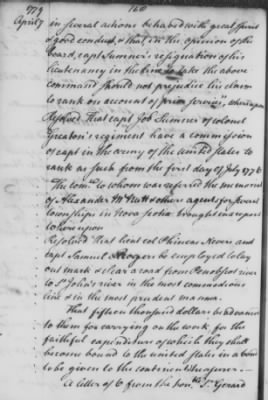 779
160
April 7
in several actions behaved with great spirit
& good conduct, & that in the opinion of the
board, capt Sumner's resignation of his
lieutenancy in the line to take the above
command should not prejudice his claim
to rank on account of prior service, whereupon
Resolved That capt Job Sumner of colonel
Greaton's regiment have a commission
of capt in the army of the united states to
rank as such from the first day of July 1776
The comee to whom was referred the memorial
of Alexander McNutt & others agents for several
townships in Nova Scotia brought in a report
whereupon
Resolved That lieut col Phineas Nevers and
capt Samuel Rogers be employed to lay
out mark & clear a road from Penobscot river
to St John's river in the most commodious
line & in the most prudent manner.
That fifteen thousand dollars be advanced
to them for carrying on the work for the
faithful expenditure of which they shall
become bound to the united states in a bond
to be given to the continental treasurer.
A letter of 6 from the honble Sr Gerard